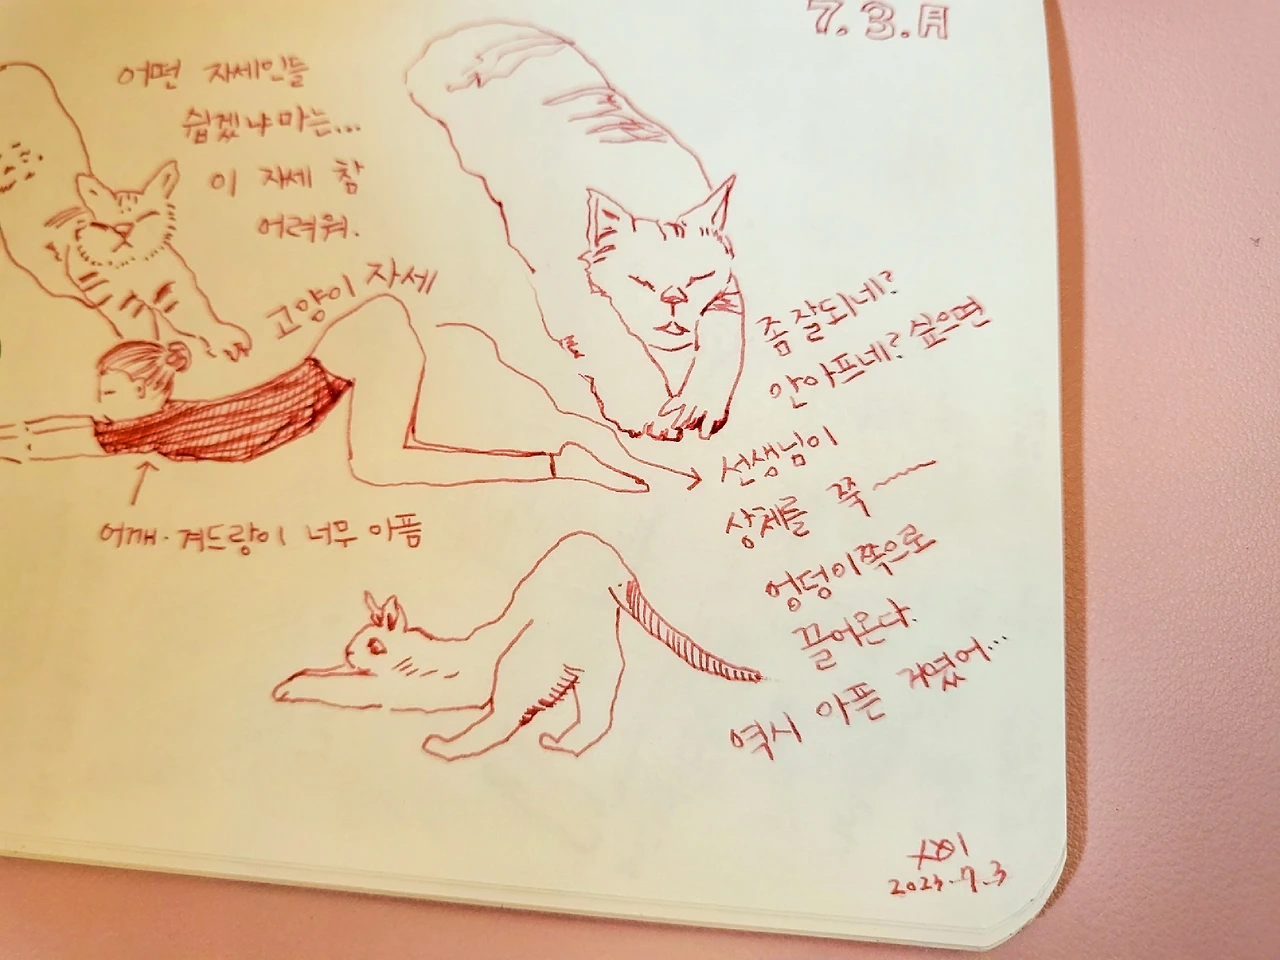 7.3.月
어떤 자세인들
쉽겠냐마는...
이 자세 참
어려워.
고양이 자세
어깨·겨드랑이 너무 아픔
좀 잘되네?
안아프네? 싶으면
선생님이
상체를 쭉
엉덩이쪽으로
끌어온다.
역시 아픈 거였어...
2023.7.3